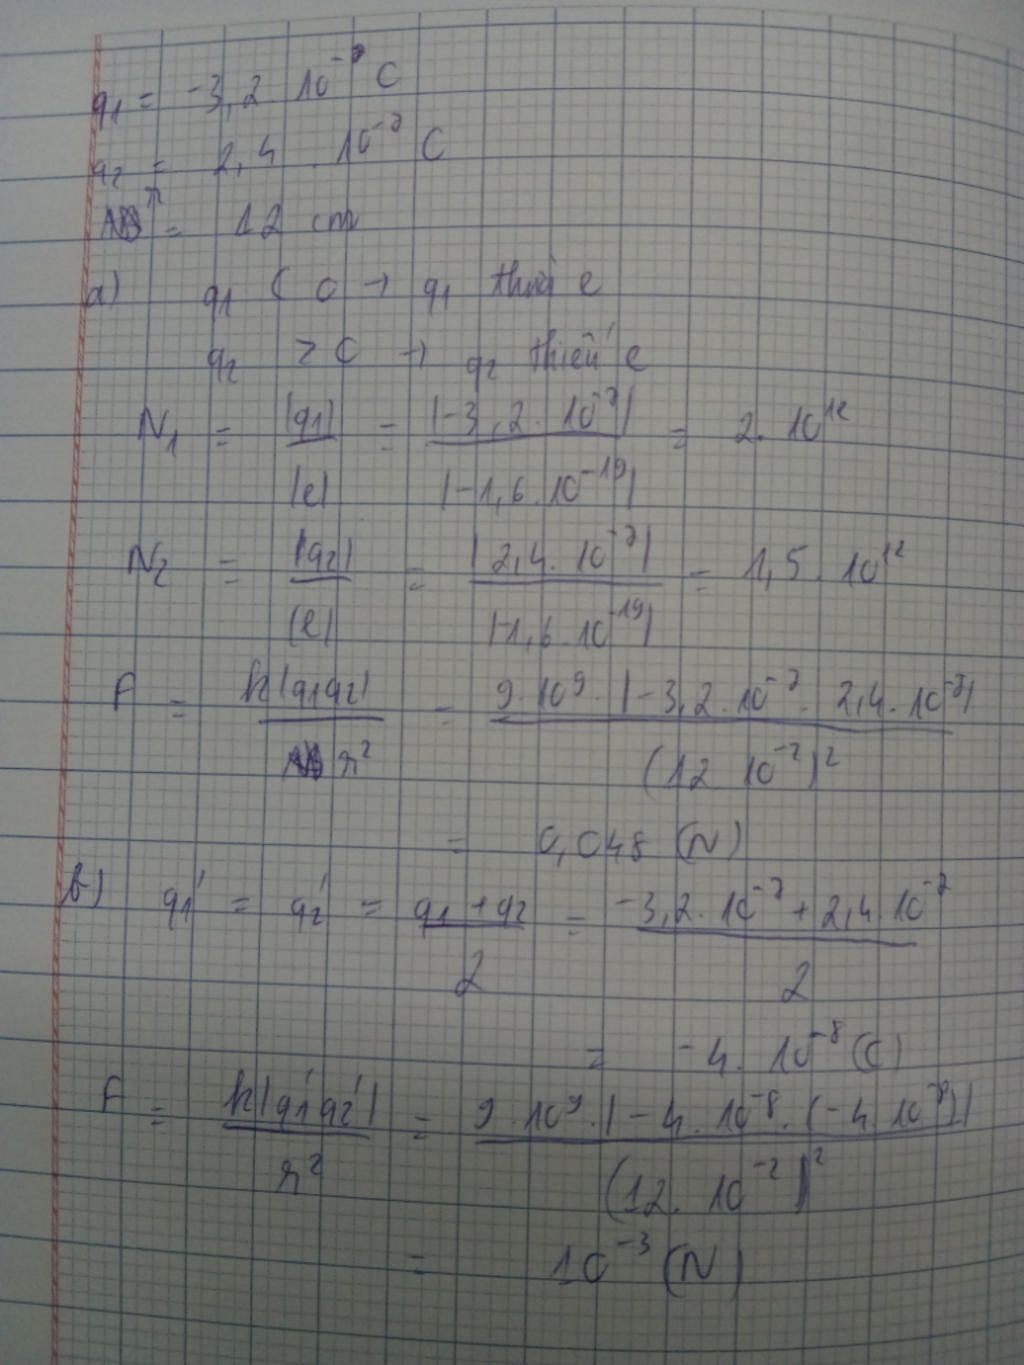 q1 = -3,2 10⁻⁷ C
q2 = 2,4 . 10⁻⁷ C
r = 12 cm
a) q1 < 0 → q1 thừa e
q2 > 0 → q2 thiếu e
N1 = |q1| / |e| = |-3,2. 10⁻⁷| / |-1,6. 10⁻¹⁹| = 2. 10¹²
N2 = |q2| / |e| = |2,4. 10⁻⁷| / |-1,6. 10⁻¹⁹| = 1,5. 10¹²
F = k|q1q2| / r² = 9. 10⁹. |-3,2. 10⁻⁷. 2,4. 10⁻⁷| / (12 10⁻²)²
= 0,048 (N)
b) q1' = q2' = q1 + q2 / 2 = -3,2. 10⁻⁷ + 2,4. 10⁻⁷ / 2
= -4. 10⁻⁸ (C)
F = k|q1'q2'| / r² = 9. 10⁹. |-4. 10⁻⁸. (-4. 10⁻⁸)| / (12. 10⁻²)²
= 10⁻³ (N)